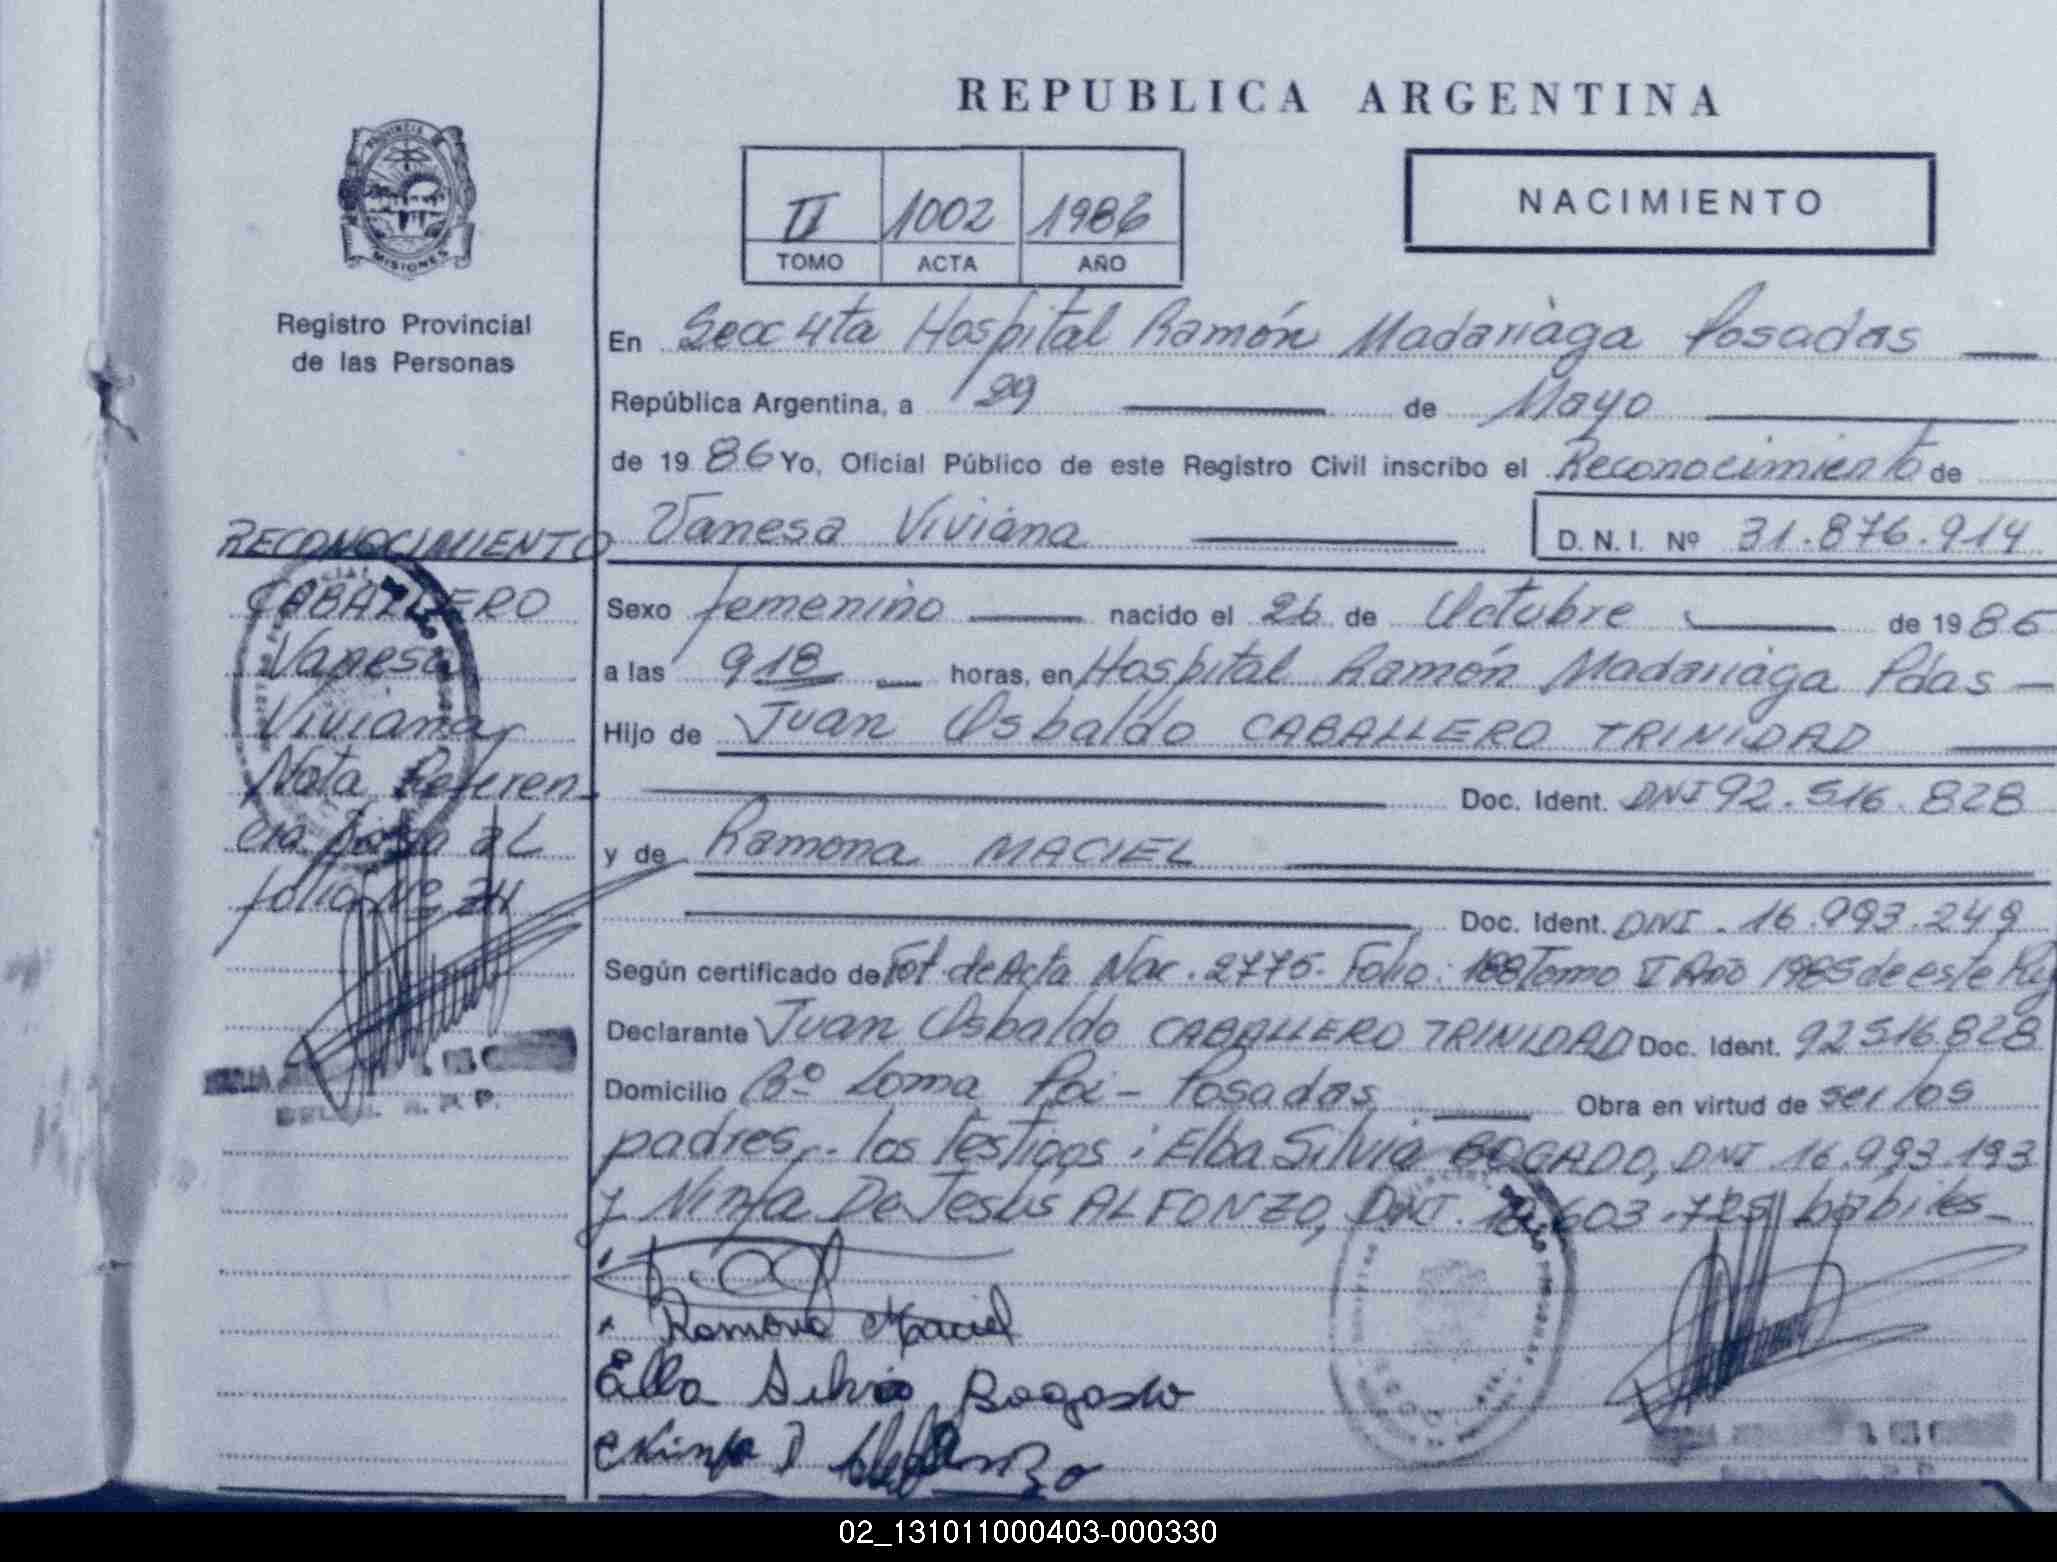 REPUBLICA ARGENTINA
PROVINCIA DE
MISIONES
Registro Provincial
de las Personas
II 1002 1986
TOMO ACTA AÑO
NACIMIENTO
En Secc 4ta Hospital Ramón Madariaga Posadas
República Argentina, a 29 de Mayo
de 1986 Yo, Oficial Público de este Registro Civil inscribo el Reconocimiento de
Vanesa Viviana D. N. I. Nº 31.876.914
Sexo femenino nacido el 26 de Octubre de 1985
a las 918 horas, en Hospital Ramón Madariaga Pdas
Hijo de Juan Osbaldo CABALLERO TRINIDAD
Doc. Ident. DNI 92.516.828
y de Ramona MACIEL
Doc. Ident. DNI. 16.993.249
Según certificado de Fot. de Acta Nac. 2775. Folio: 188 Tomo II Año 1985 de este Reg
Declarante Juan Osbaldo CABALLERO TRINIDAD Doc. Ident. 92516828
Domicilio Bº Loma Poi - Posadas Obra en virtud de ser los
padres.- los testigos: Elba Silvia BOGADO, DNI 16.993.193
y Ninfa De Jesús ALFONZO, DNI. 603.725 hábiles
Ramona Maciel
Elba Silvia Bogado
Ninfa D Alfonzo
RECONOCIMIENTO
CABALLERO
Vanesa
Viviana
Nota Referen
cia al
folio Nº
02_131011000403-000330